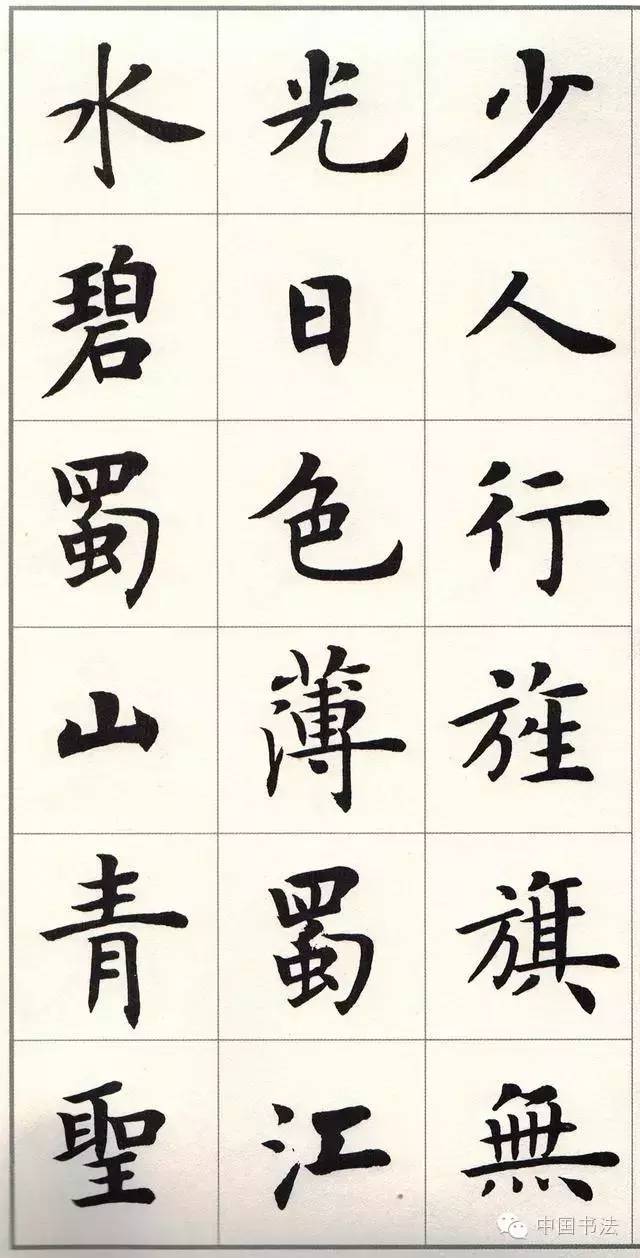 少人行旌旗無
光日色薄蜀江
水碧蜀山青聖
中国书法